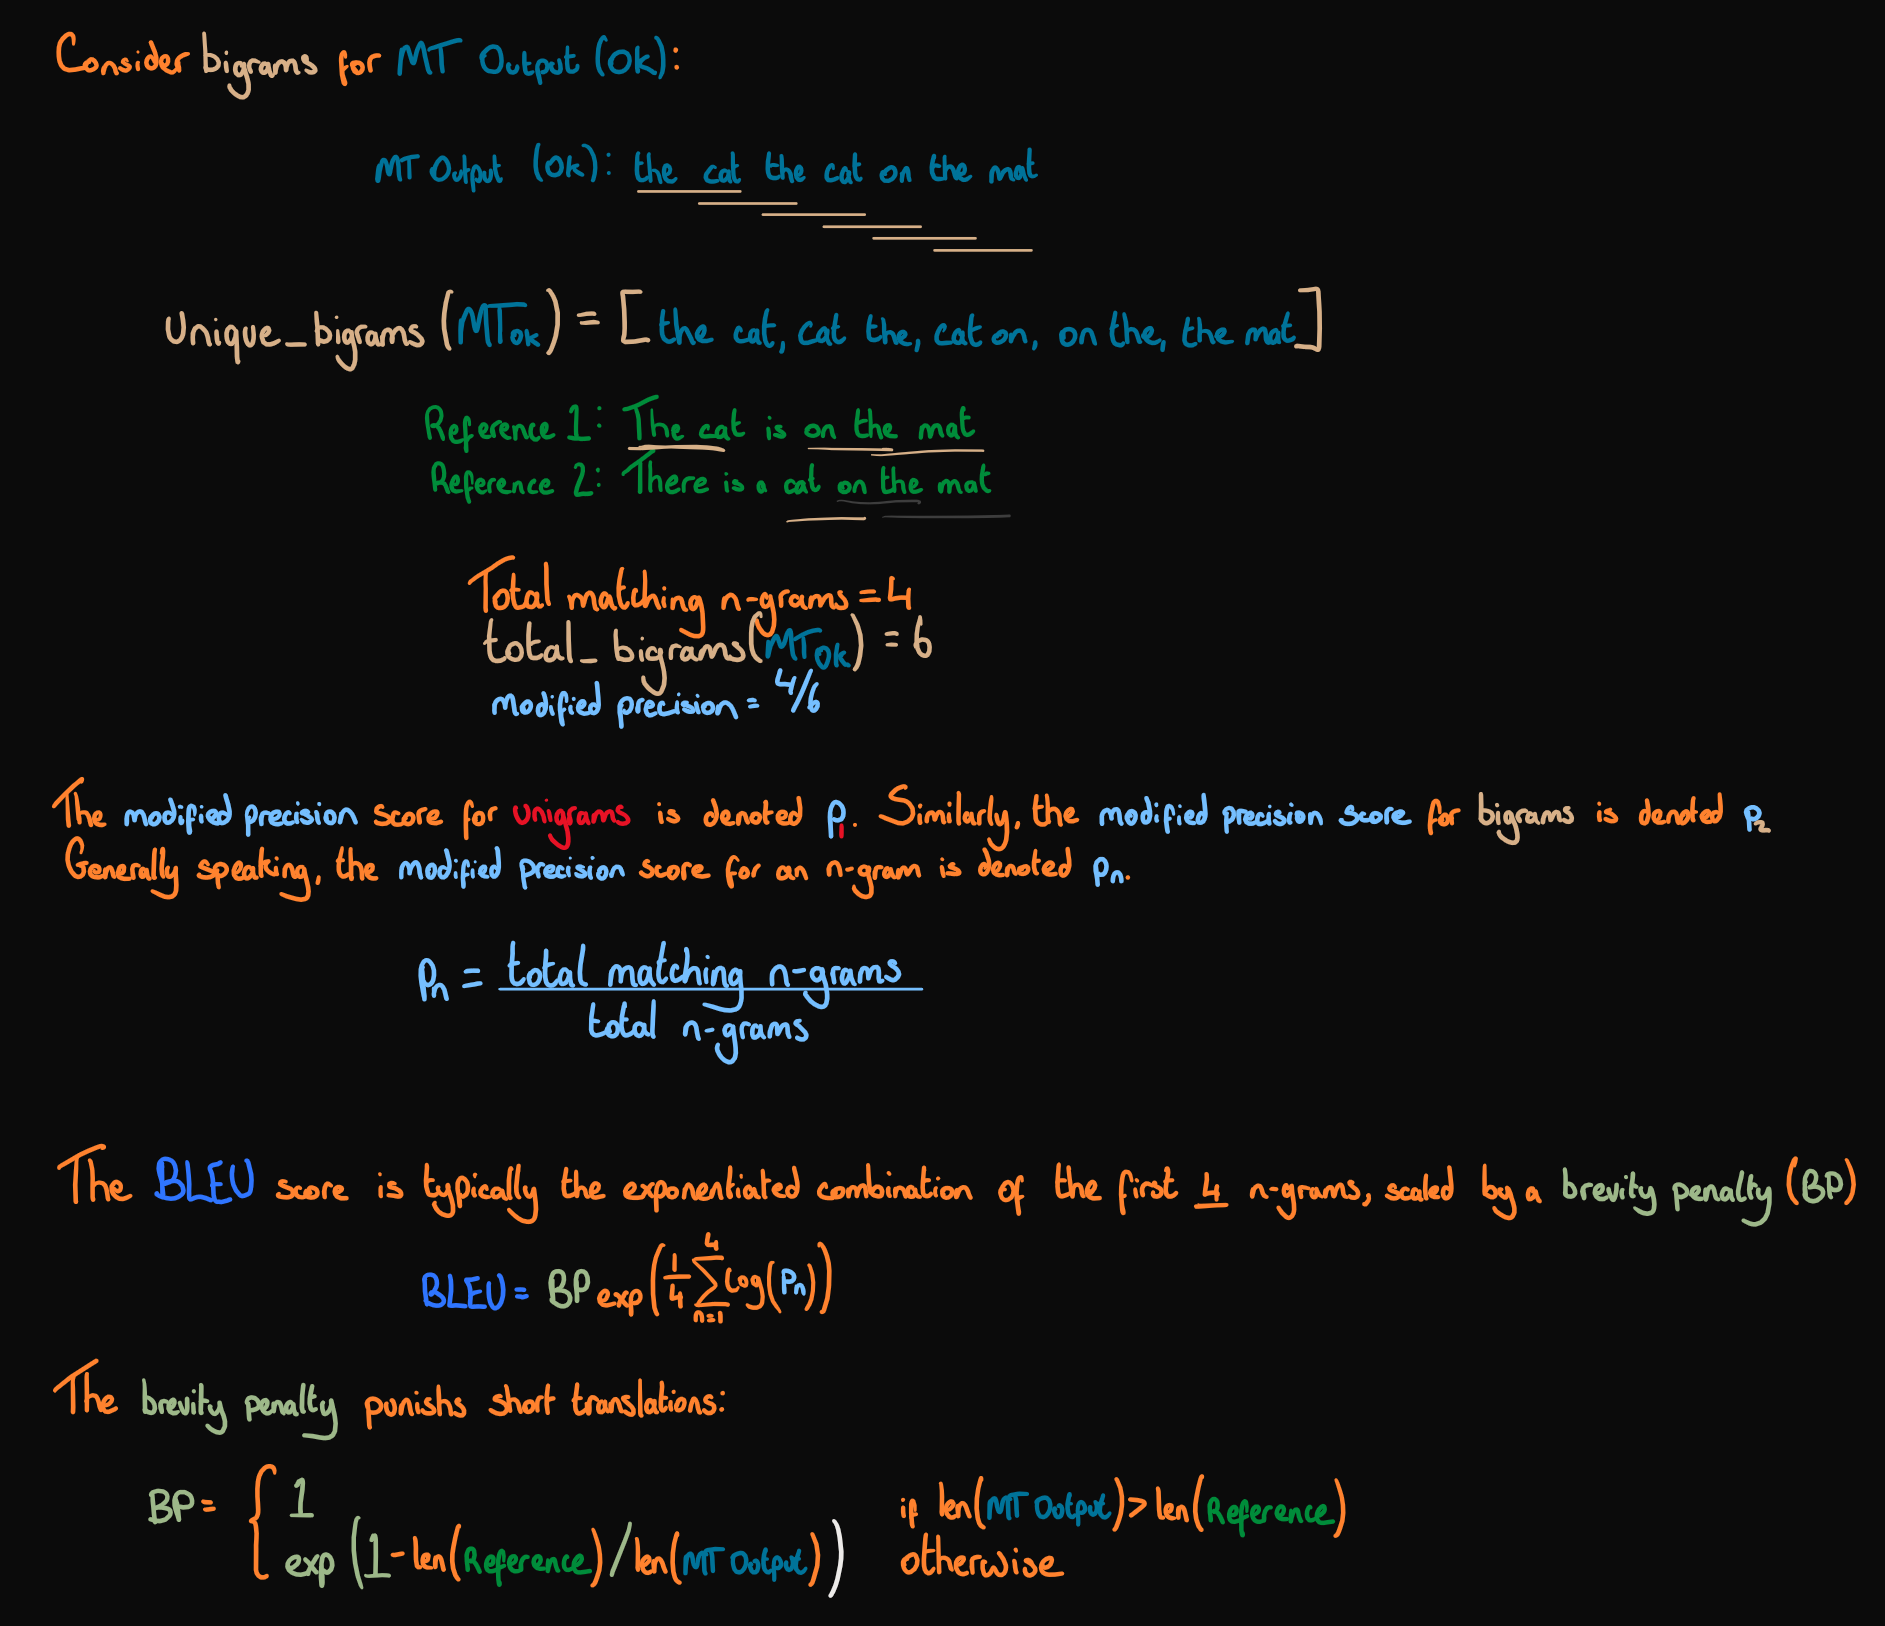 Consider bigrams for MT Output (Ok):
MT Output (Ok): the cat the cat on the mat
Unique_bigrams (MT_ok) = [the cat, cat the, cat on, on the, the mat]
Reference 1: The cat is on the mat
Reference 2: There is a cat on the mat
Total matching n-grams = 4
total_bigrams(MT_Ok) = 6
modified precision = 4/6
The modified precision score for unigrams is denoted p₁. Similarly, the modified precision score for bigrams is denoted p₂
Generally speaking, the modified precision score for an n-gram is denoted pₙ.
pₙ = total matching n-grams / total n-grams
The BLEU score is typically the exponentiated combination of the first 4 n-grams, scaled by a brevity penalty (BP)
BLEU = BP exp(1/4 ∑_{n=1}^{4} log(pₙ))
The brevity penalty punishs short translations:
BP = { 1 if len(MT Output) > len(Reference)
exp (1 - len(Reference) / len(MT Output)) otherwise